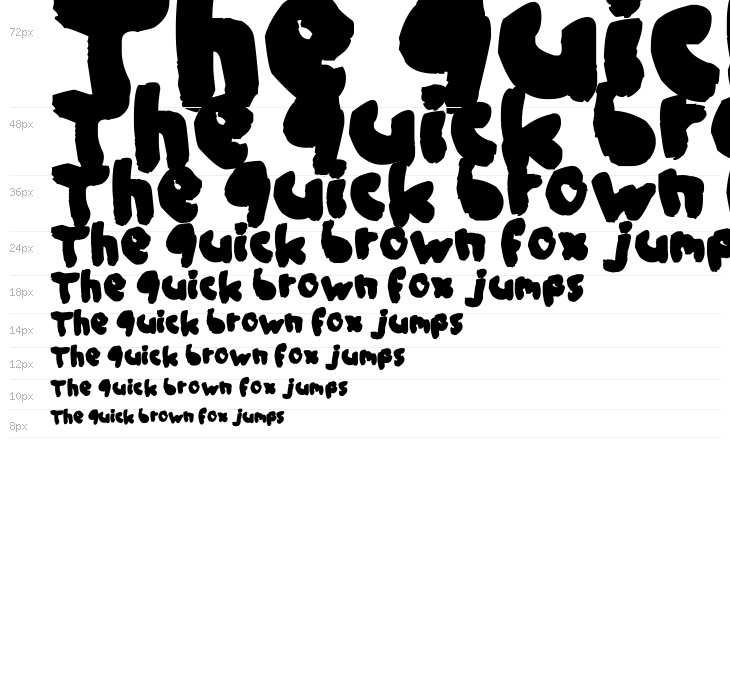 72px The quic
48px The quick br
36px The quick brown
24px The quick brown fox jump
18px The quick brown fox jumps
14px The quick brown fox jumps
12px The quick brown fox jumps
10px The quick brown fox jumps
8px The quick brown fox jumps